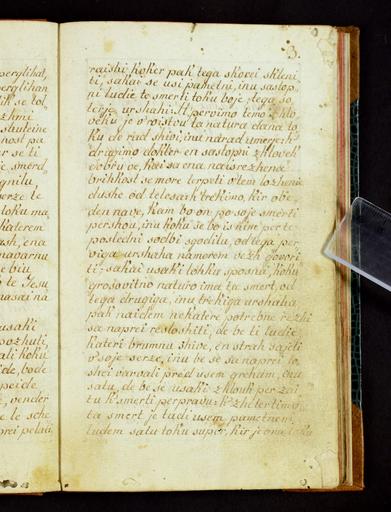 3.
raistai koker pak tega skorei skleni
ti, sakai se usi pametni, inu sastop
ni ludje te smerti toku boje, tega so
trije urshahi. Ta pervi mo temo zhlo
veku je v'roistvu ta natura dana to
ku de rad shivi, inu nerad umerje, k'
drugimo dokler en sastopni zhlovek
dobru ve, kai sa ena naisrezhena
brihkost se more terpeti v'tem lozhenie
dushe od telesa, k'tretkimo, kir obe
den na ve, kam bo on po soje smerti
pershou, inu koku se bo is nim per te
posledni sodbi sgodilu, od tega per
viga urshaha namorem vezh govori
ti, sakai usaki lohka sposna, koku
grosovitno naturo ima ta smert, od
tega drugiga, inu tretkiga urshaha
pak naidem nekatere potrebne rezhi
sa naprei resloshiti, de be ti ludje
kateri brumnu shive, en strah sajeti
v'soje serze, inu be se sa naprei lo
shei varvali pred usem greham, inu
satu, de be se usaki zhlouk per zai
tu k'smerti perpravu. k'zhetertimo
ta smert je tudi usem pametnem
ludem satu toku super, kir je ona toku
perglihat,
perglihan
nost pa
smerd
gnilu
verze te
toku ma
katerem
ash, ena
navarnu
se biu
te Jesu
nasai na
usaki
pozhuli,
ali koku
ide, bode
peide
vender
te sche
prei pelati